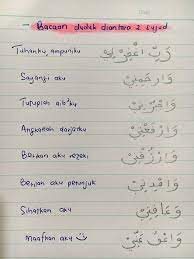 Bacaan duduk diantara 2 sujud
Tuhanku ampuniku رَبِّ اغْفِرْلِيْ
Sayangi aku وَارْحَمْنِيْ
Tutuplah aib'ku وَاجْبُرْنِيْ
Angkatlah darjatku وَارْفَعْنِيْ
Berikan aku rezeki وَارْزُقْنِيْ
Berilah aku petunjuk وَاهْدِنِيْ
Sihatkan aku وَعَافِنِيْ
Maafkan aku وَاعْفُ عَنِّيْ